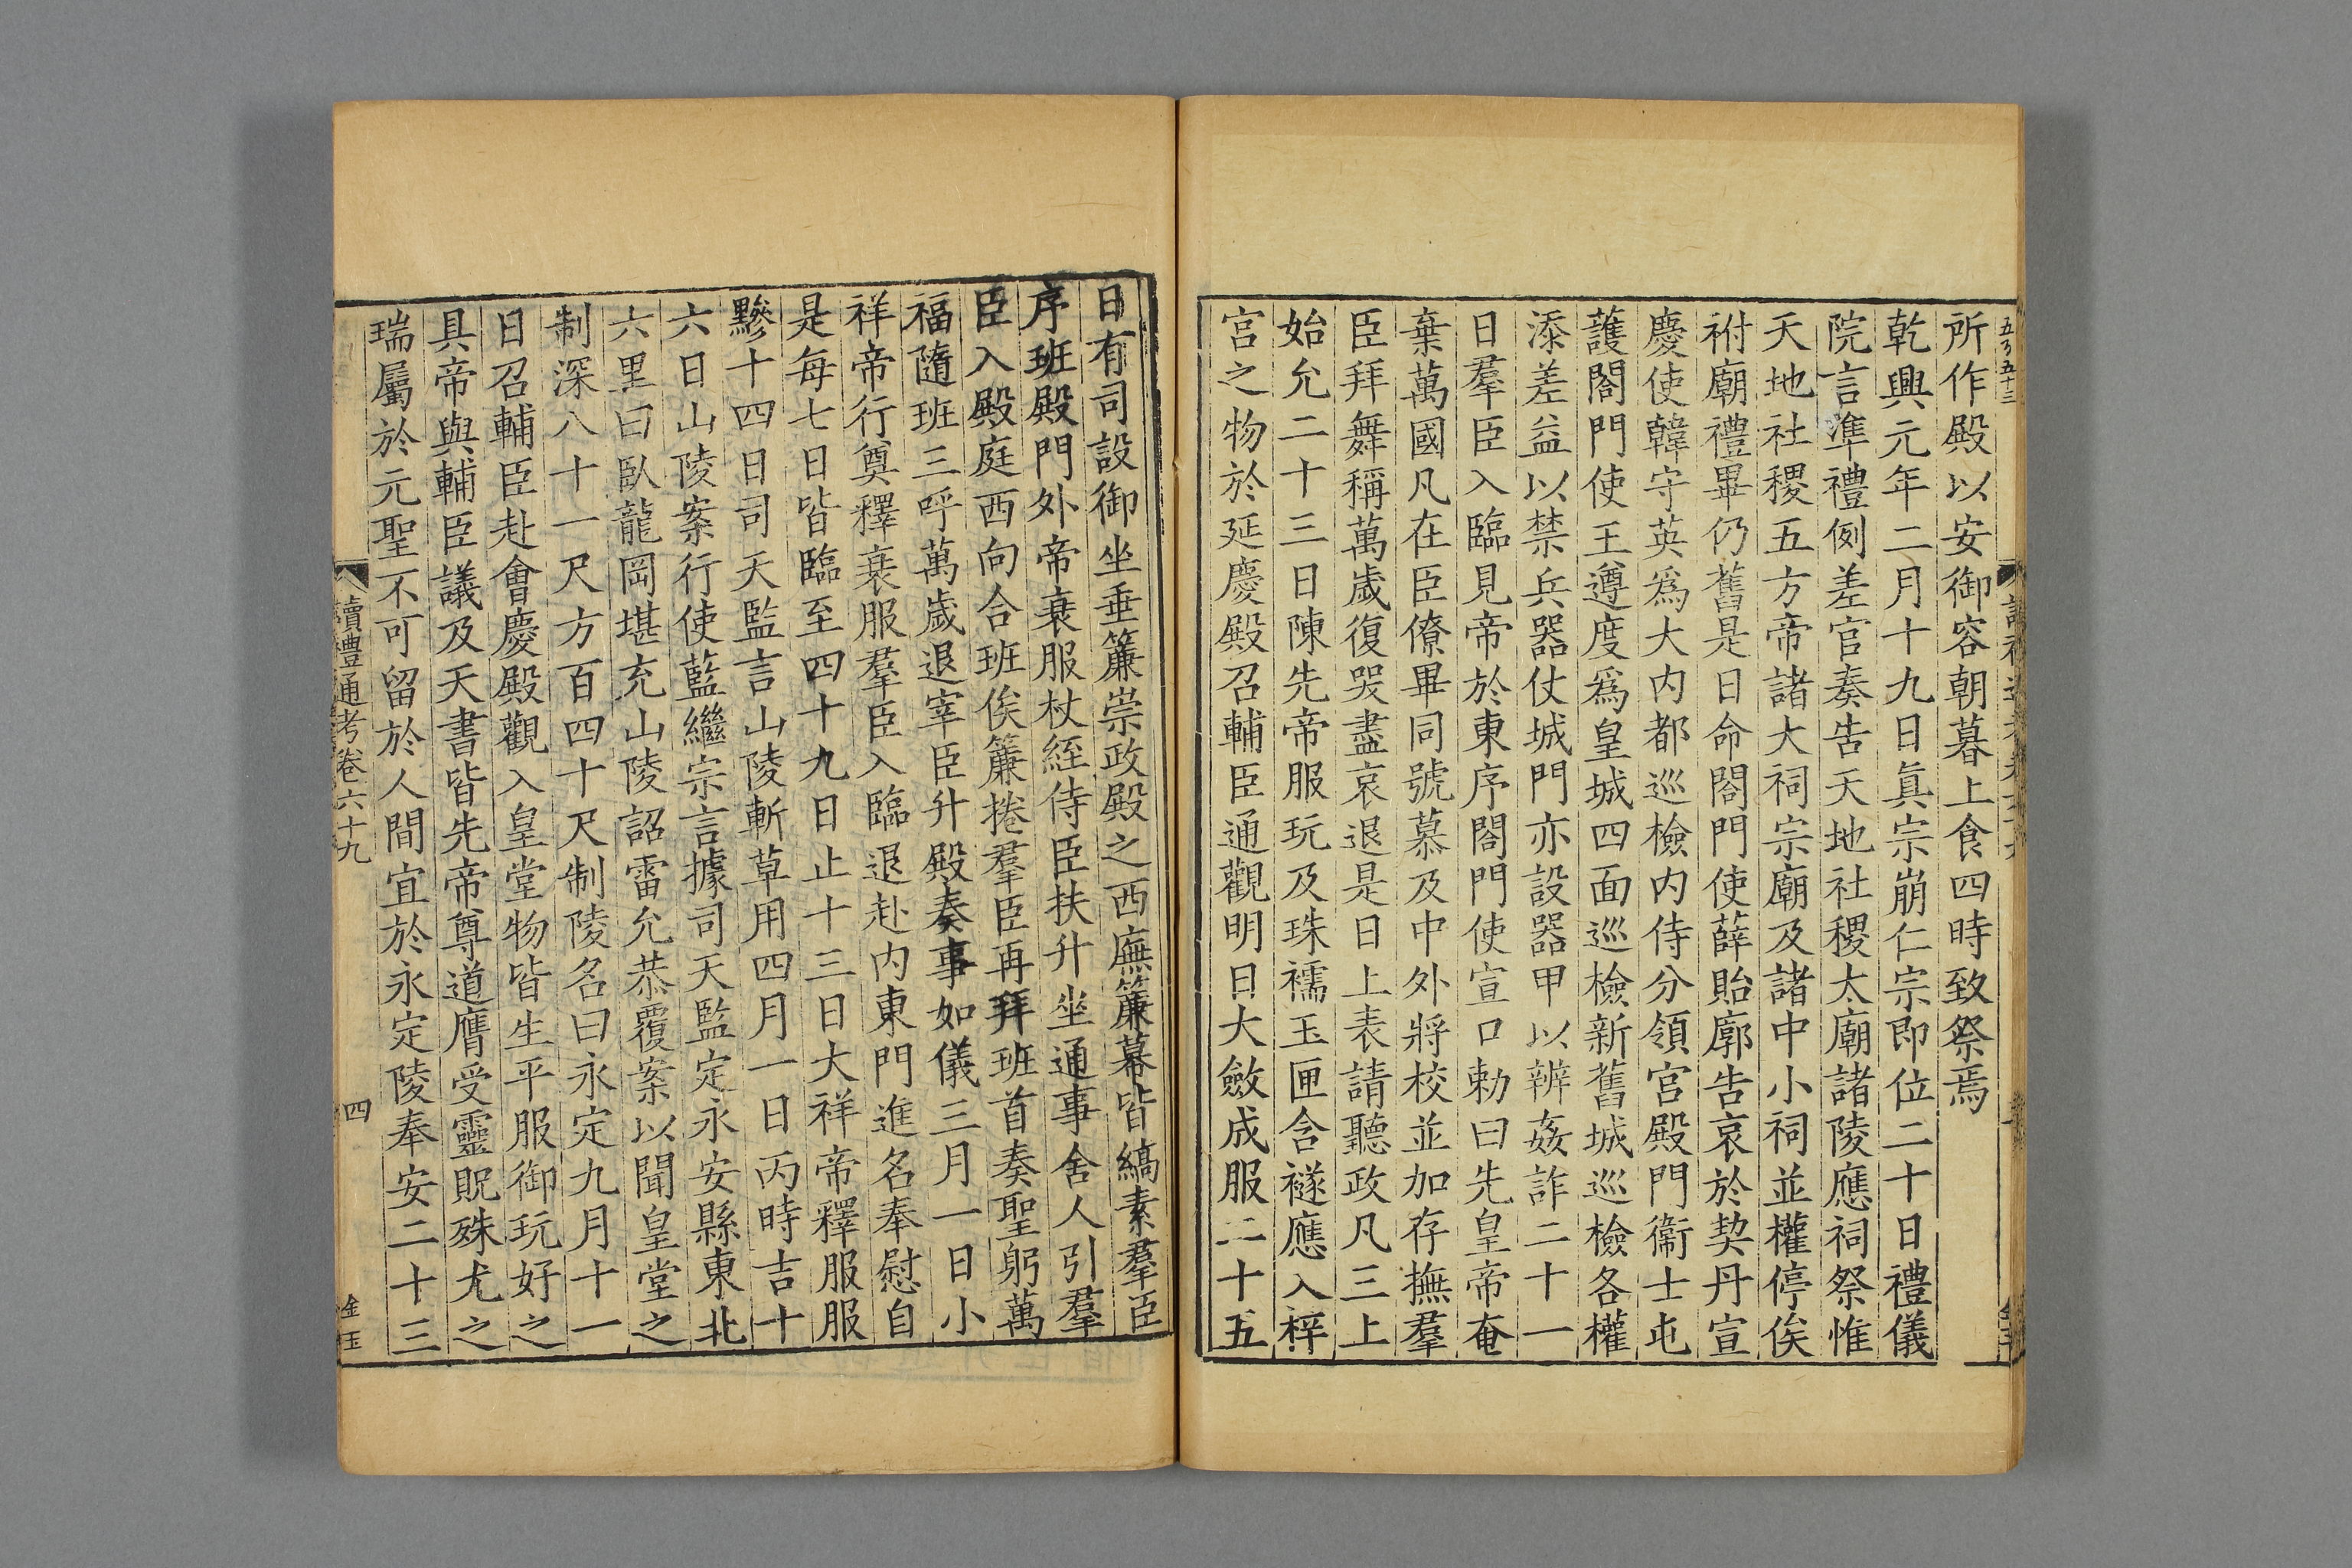 所作殿以安御容朝暮上食四時致祭焉
乾興元年二月十九日真宗崩仁宗即位二十日禮儀
院言準禮例差官奏告天地社稷太廟諸陵應祠祭惟
天地社稷五方帝諸大祠宗廟及諸中小祠並權停俟
祔廟禮畢仍舊是日命閤門使薛貽廓告哀於契丹宣
慶使韓守英爲大内都巡檢内侍分領宮殿門衞士屯
護閤門使王遵度爲皇城四面巡檢新舊城巡檢各權
添差益以禁兵器仗城門亦設器甲以辨姦詐二十一
日羣臣入臨見帝於東序閤門使宣口勅曰先皇帝奄
棄萬國凡在臣僚畢同號慕及中外將校並加存撫羣
臣拜舞稱萬歲復哭盡哀退是日上表請聽政凡三上
始允二十三日陳先帝服玩及珠襦玉匣含襚應入梓
宮之物於延慶殿召輔臣通觀明日大斂成服二十五
日有司設御坐垂簾崇政殿之西廡簾幕皆縞素羣臣
序班殿門外帝衰服杖絰侍臣扶升坐通事舍人引羣
臣入殿庭西向合班俟簾捲羣臣再拜班首奏聖躬萬
福隨班三呼萬歲退宰臣升殿奏事如儀三月一日小
祥帝行奠釋衰服羣臣入臨退赴内東門進名奉慰自
是每七日皆臨至四十九日止十三日大祥帝釋服服
黲十四日司天監言山陵斬草用四月一日丙時吉十
六日山陵案行使藍繼宗言據司天監定永安縣東北
六里曰臥龍岡堪充山陵詔雷允恭覆案以聞皇堂之
制深八十一尺方百四十尺制陵名曰永定九月十一
日召輔臣赴會慶殿觀入皇堂物皆生平服御玩好之
具帝與輔臣議及天書皆先帝尊道膺受靈貺殊尤之
瑞屬於元聖不可留於人間宜於永定陵奉安二十三
讀禮通考卷六十九
四
金玉